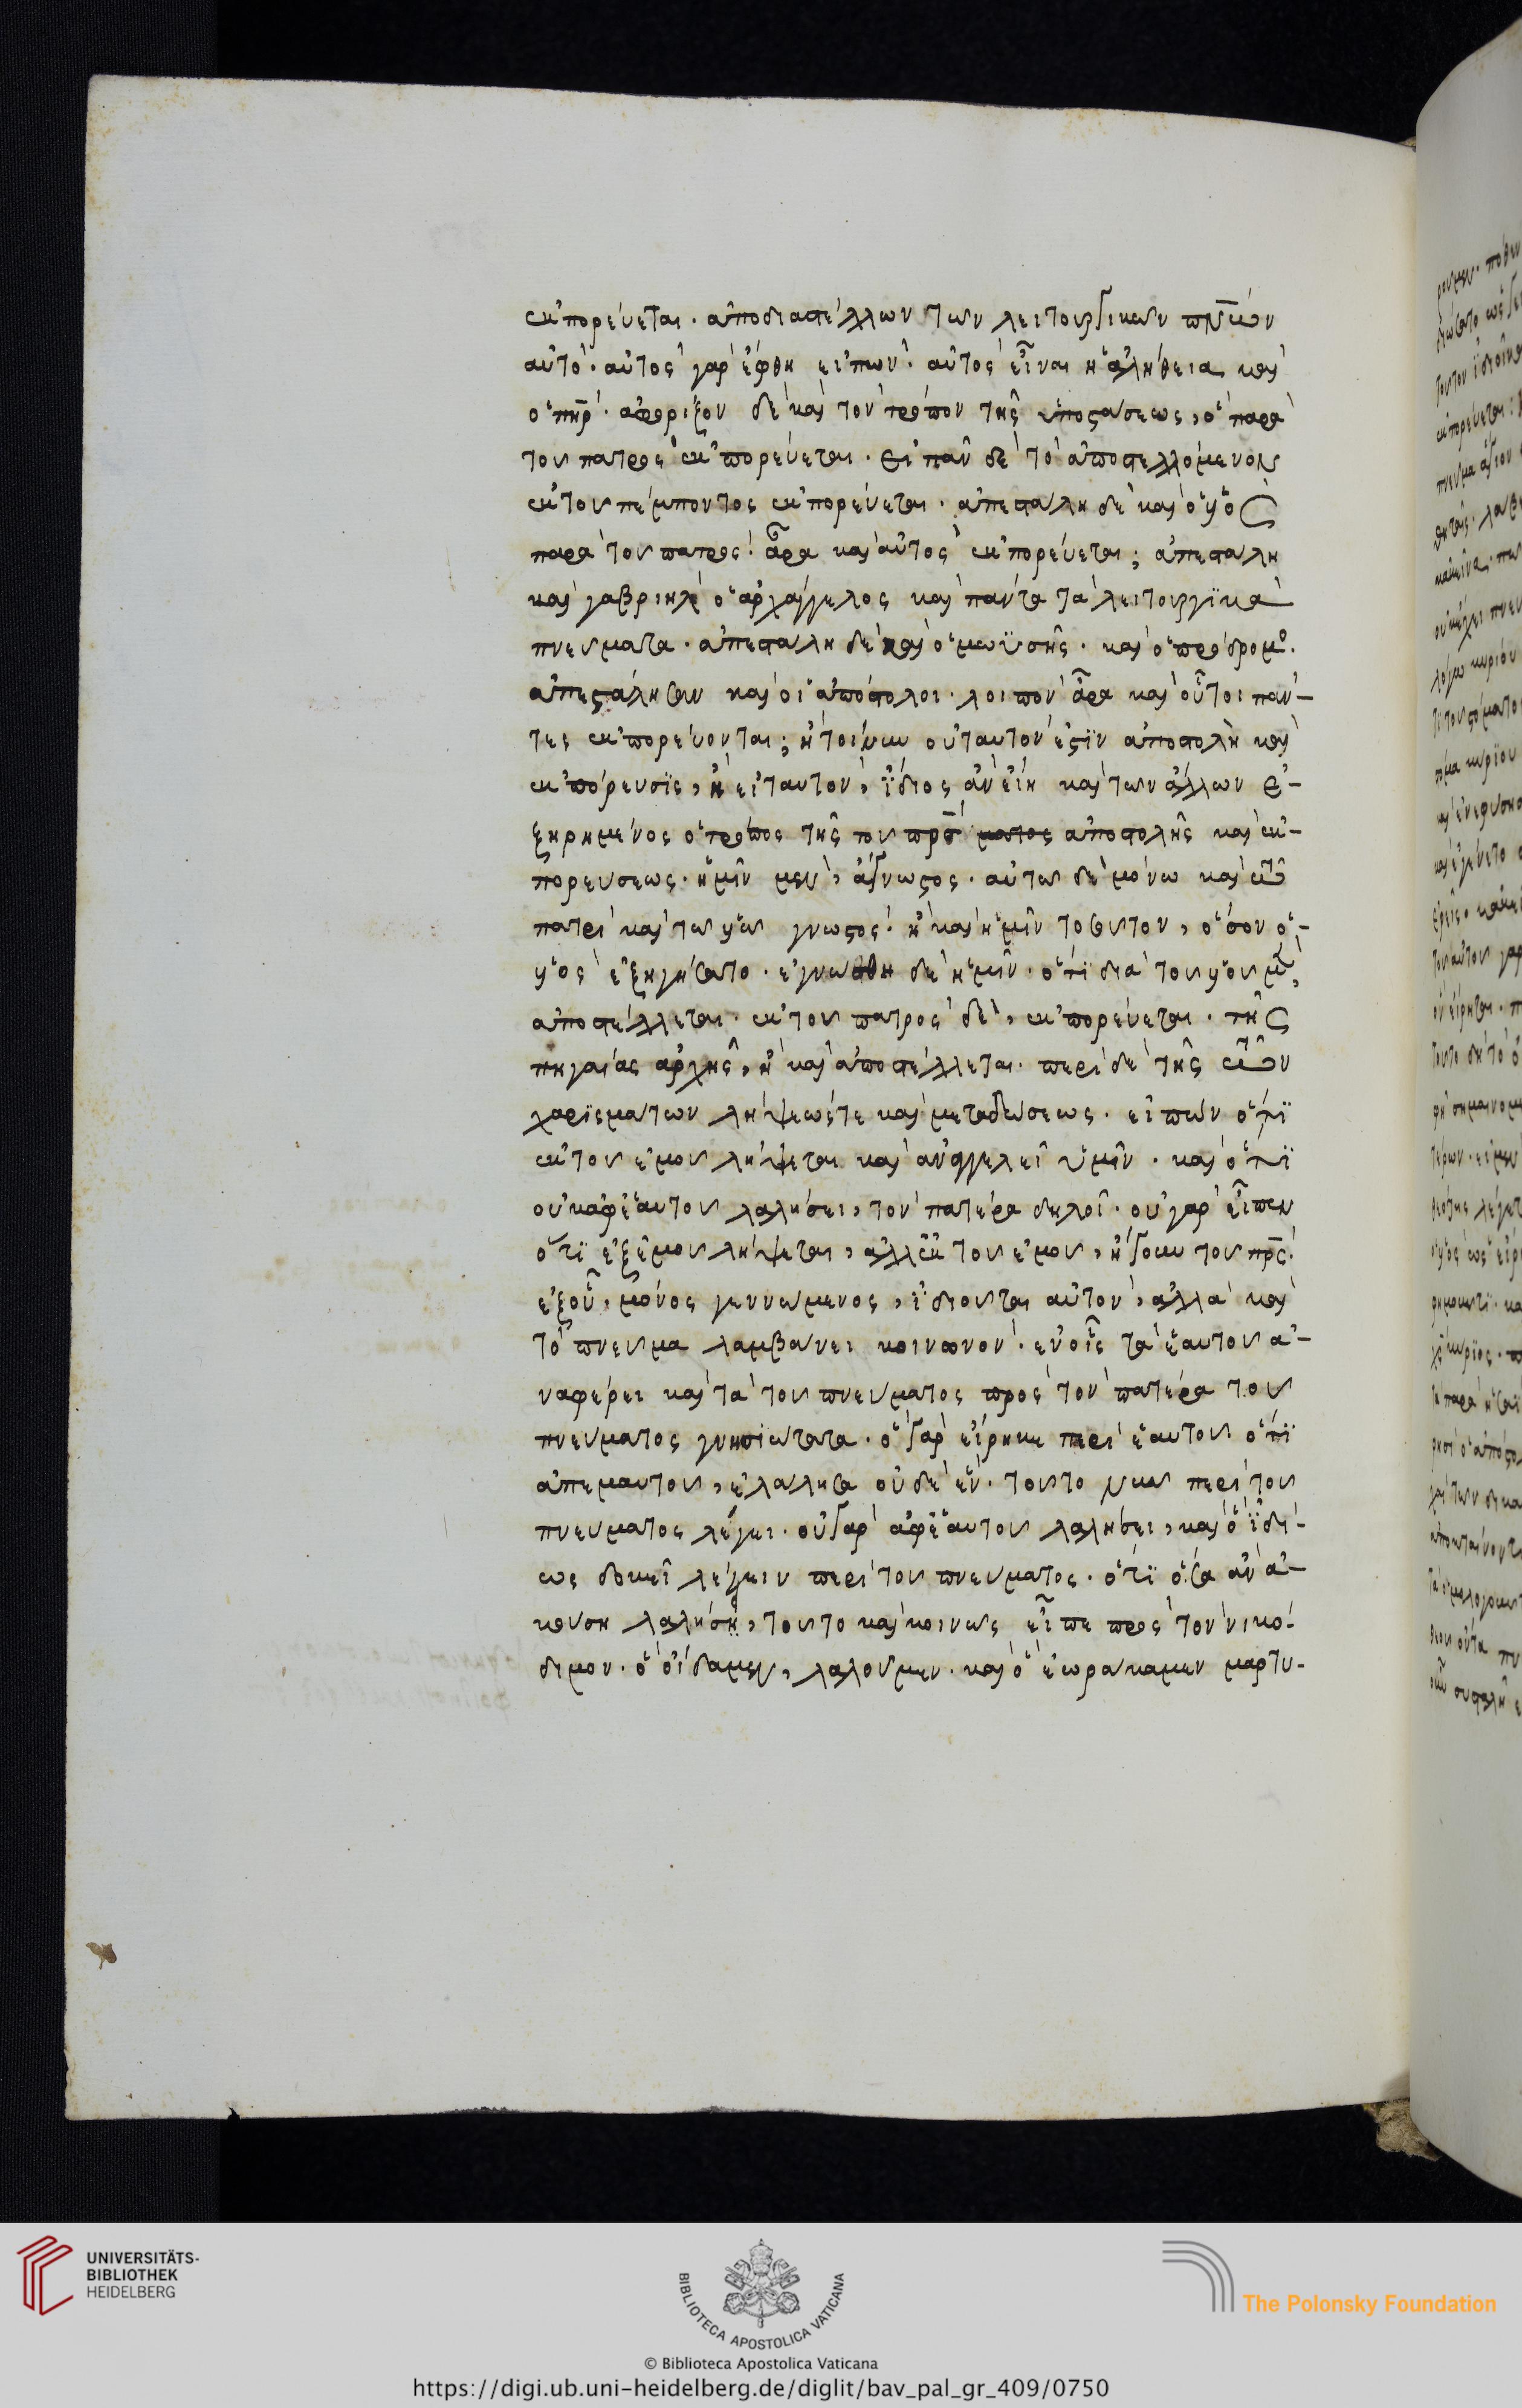 ἐκπορεύεται. ἀποδιαστέλλων τῶν λειτουργικῶν πνκῶν
αὐτό. αὐτὸς γὰρ ἔφθη εἰπών. αὐτὸς εἶναι ἡ ἀλήθεια καὶ
ὁ πηρ. ἀφοριζον δὲ καὶ τὸν τρόπον τῆς ὑποστάσεως, ὃ παρὰ
τοῦ πατρὸς ἐκπορεύεται. εἰ πᾶν δὲ τὸ ἀποστελλόμενον
ἐκ τοῦ πέμποντος ἐκπορεύεται. ἀπεστάλη δὲ καὶ ὁ υἱὸς
παρὰ τοῦ πατρός. ἆρα καὶ αὐτὸς ἐκπορεύεται; ἀπεστάλη
καὶ γαβριὴλ ὁ ἀρχάγγελος καὶ πάντα τὰ λειτουργϊκὰ
πνεύματα. ἀπεστάλη δὲ καὶ ὁ μωϋσῆς. καὶ ὁ πρόδρομο.
ἀπεστάλησαν καὶ οἱ ἀπόστολοι. λοιπὸν ἆρα καὶ οὗτοι πάν-
τες ἐκπορεύονται; ἢ τοίνυν οὐ ταυτόν ἐστϊν ἀποστολὴ καὶ
ἐκπόρευσϊς, ἢ εἰ ταυτόν, ἴδιος ἂν εἴη καὶ τῶν ἄλλων ἐ-
ξηρημένος ὁ τρόπος τῆς τοῦ ἀποστολῆς καὶ ἐκ-
πορεύσεως. ἡμῖν μὲν, ἄγνωστος. αὐτῶ δὲ μόνω καὶ τῶ
πατρὶ καὶ τῶ υἱῶ γνωστός. ἢ καὶ ἡμῖν τοσοῦτον, ὅσον ὁ-
υἱὸς ἐξηγήσατο. ἐγνώσθη δὲ ἡμῖν. ὅτϊ διὰ τοῦ υἱοῦ μὲν,
ἀποστέλλεται. ἐκ τοῦ πατρὸς δὲ, ἐκπορεύεται. τῆς
πηγαίας ἀρχῆς, ἢ καὶ ἀποστέλλεται. περὶ δὲ τῆς τῶν
χαρϊσμάτων λήψεώς τε καὶ μεταδώσεως. εἰπὼν ὅτϊ
ἐκ τοῦ ἐμοῦ λήψεται καὶ ἀναγγελεῖ ὑμῖν. καὶ ὅτϊ
οὐκ ἀφ' ἑαυτοῦ λαλήσει, τὸν πατέρα δηλοῖ. οὐ γὰρ εἶπεν
ὅτϊ ἐξ ἐμοῦ λήψεται, ἀλλ' ἐκ τοῦ ἐμοῦ, ἤγουν τοῦ πρς.
ἐξ οὗ, μόνος γεννώμενος, ἰδιοῦται αὐτὸν, ἀλλὰ καὶ
τὸ πνεῦμα λαμβάνει κοινωνόν. ἐν οἷς τὰ ἑαυτοῦ ἀ-
ναφέρει καὶ τὰ τοῦ πνεύματος πρὸς τὸν πατέρα τοῦ
πνεύματος γνησϊώτατα. ὃ γὰρ εἴρηκε περὶ ἑαυτοῦ ὅτϊ
ἀπ' ἐμαυτοῦ, ἐλάλησα οὐδὲ ἕν. τοῦτο νῦν περὶ τοῦ
πνεύματος λέγει. οὐ γὰρ ἀφ' ἑαυτοῦ λαλήσει, καὶ ὃ ἰδί-
ως δοκεῖ λέγειν περὶ τοῦ πνεύματος. ὅτϊ ὅσα ἂν ἀ-
κούση λαλήση, τοῦτο καὶ κοινῶς εἶπε πρὸς τὸν νικό-
διμον. ὃ οἴδαμεν, λαλοῦμεν. καὶ ὃ ἑωράκαμεν μαρτυ-
UNIVERSITÄTS-
BIBLIOTHEK
HEIDELBERG
BIBLIOTECA APOSTOLICA VATICANA
The Polonsky Foundation
© Biblioteca Apostolica Vaticana
https://digi.ub.uni-heidelberg.de/diglit/bav_pal_gr_409/0750